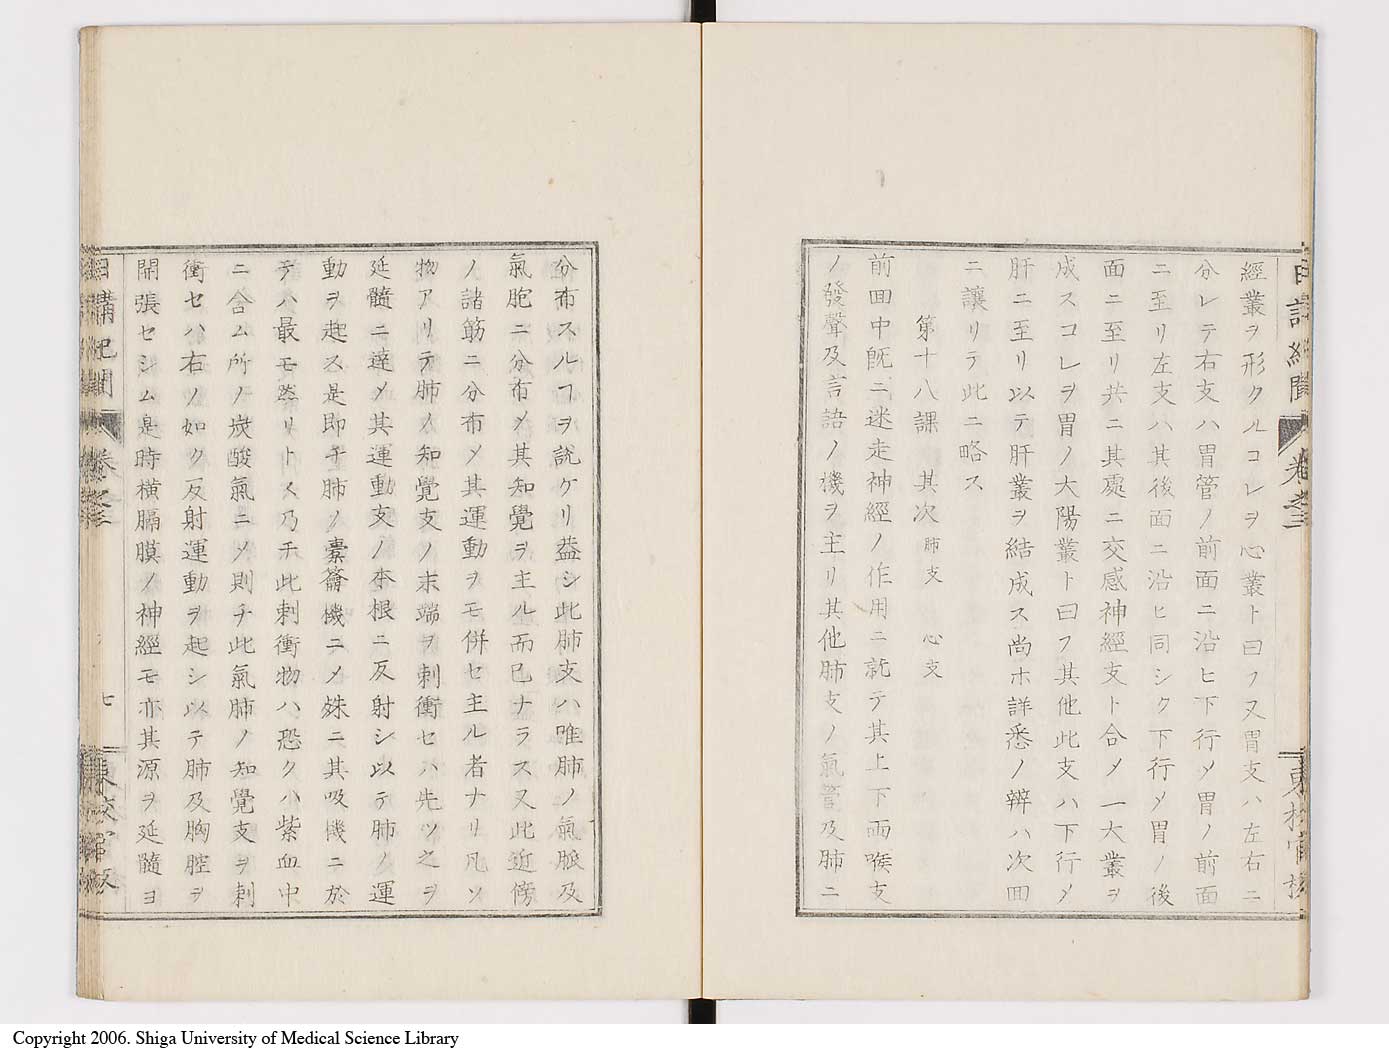 經叢ヲ形クルコレヲ心叢ト曰フ又胃支ハ左右ニ
分レテ右支ハ胃管ノ前面ニ沿ヒ下行〆胃ノ前面
ニ至リ左支ハ其後面ニ沿ヒ同シク下行〆胃ノ後
面ニ至リ共ニ其處ニ交感神經支ト合〆一大叢ヲ
成スコレヲ胃ノ大陽叢ト曰フ其他此支ハ下行〆
肝ニ至リ以テ肝叢ヲ結成ス尚ホ詳悉ノ辨ハ次回
ニ讓リテ此ニ略ス
第十八課 其次 肺支 心支
前回中既ニ迷走神經ノ作用ニ就テ其上下両喉支
ノ發聲及言語ノ機ヲ主リ其他肺支ノ氣管及肺ニ
分布スルヿヲ説ケリ葢シ此肺支ハ唯肺ノ氣脈及
氣胞ニ分布〆其知覺ヲ主ル而已ナラス又此近傍
ノ諸筋ニ分布〆其運動ヲモ併セ主ル者ナリ凡ソ
物アリテ肺ノ知覺支ノ末端ヲ刺衝セハ先ツ之ヲ
延髓ニ達〆其運動支ノ本根ニ反射シ以テ肺ノ運
動ヲ起ス是即チ肺ノ橐籥機ニ〆殊ニ其吸機ニ於
テハ最モ然リトス乃チ此刺衝物ハ恐クハ紫血中
ニ含ム所ノ炭酸氣ニ〆則チ此氣肺ノ知覺支ヲ刺
衝セハ右ノ如ク反射運動ヲ起シ以テ肺及胸腔ヲ
開張セシム是時横膈膜ノ神經モ亦其源ヲ延髓ヨ
日講記聞 卷之三
七
Copyright 2006. Shiga University of Medical Science Library